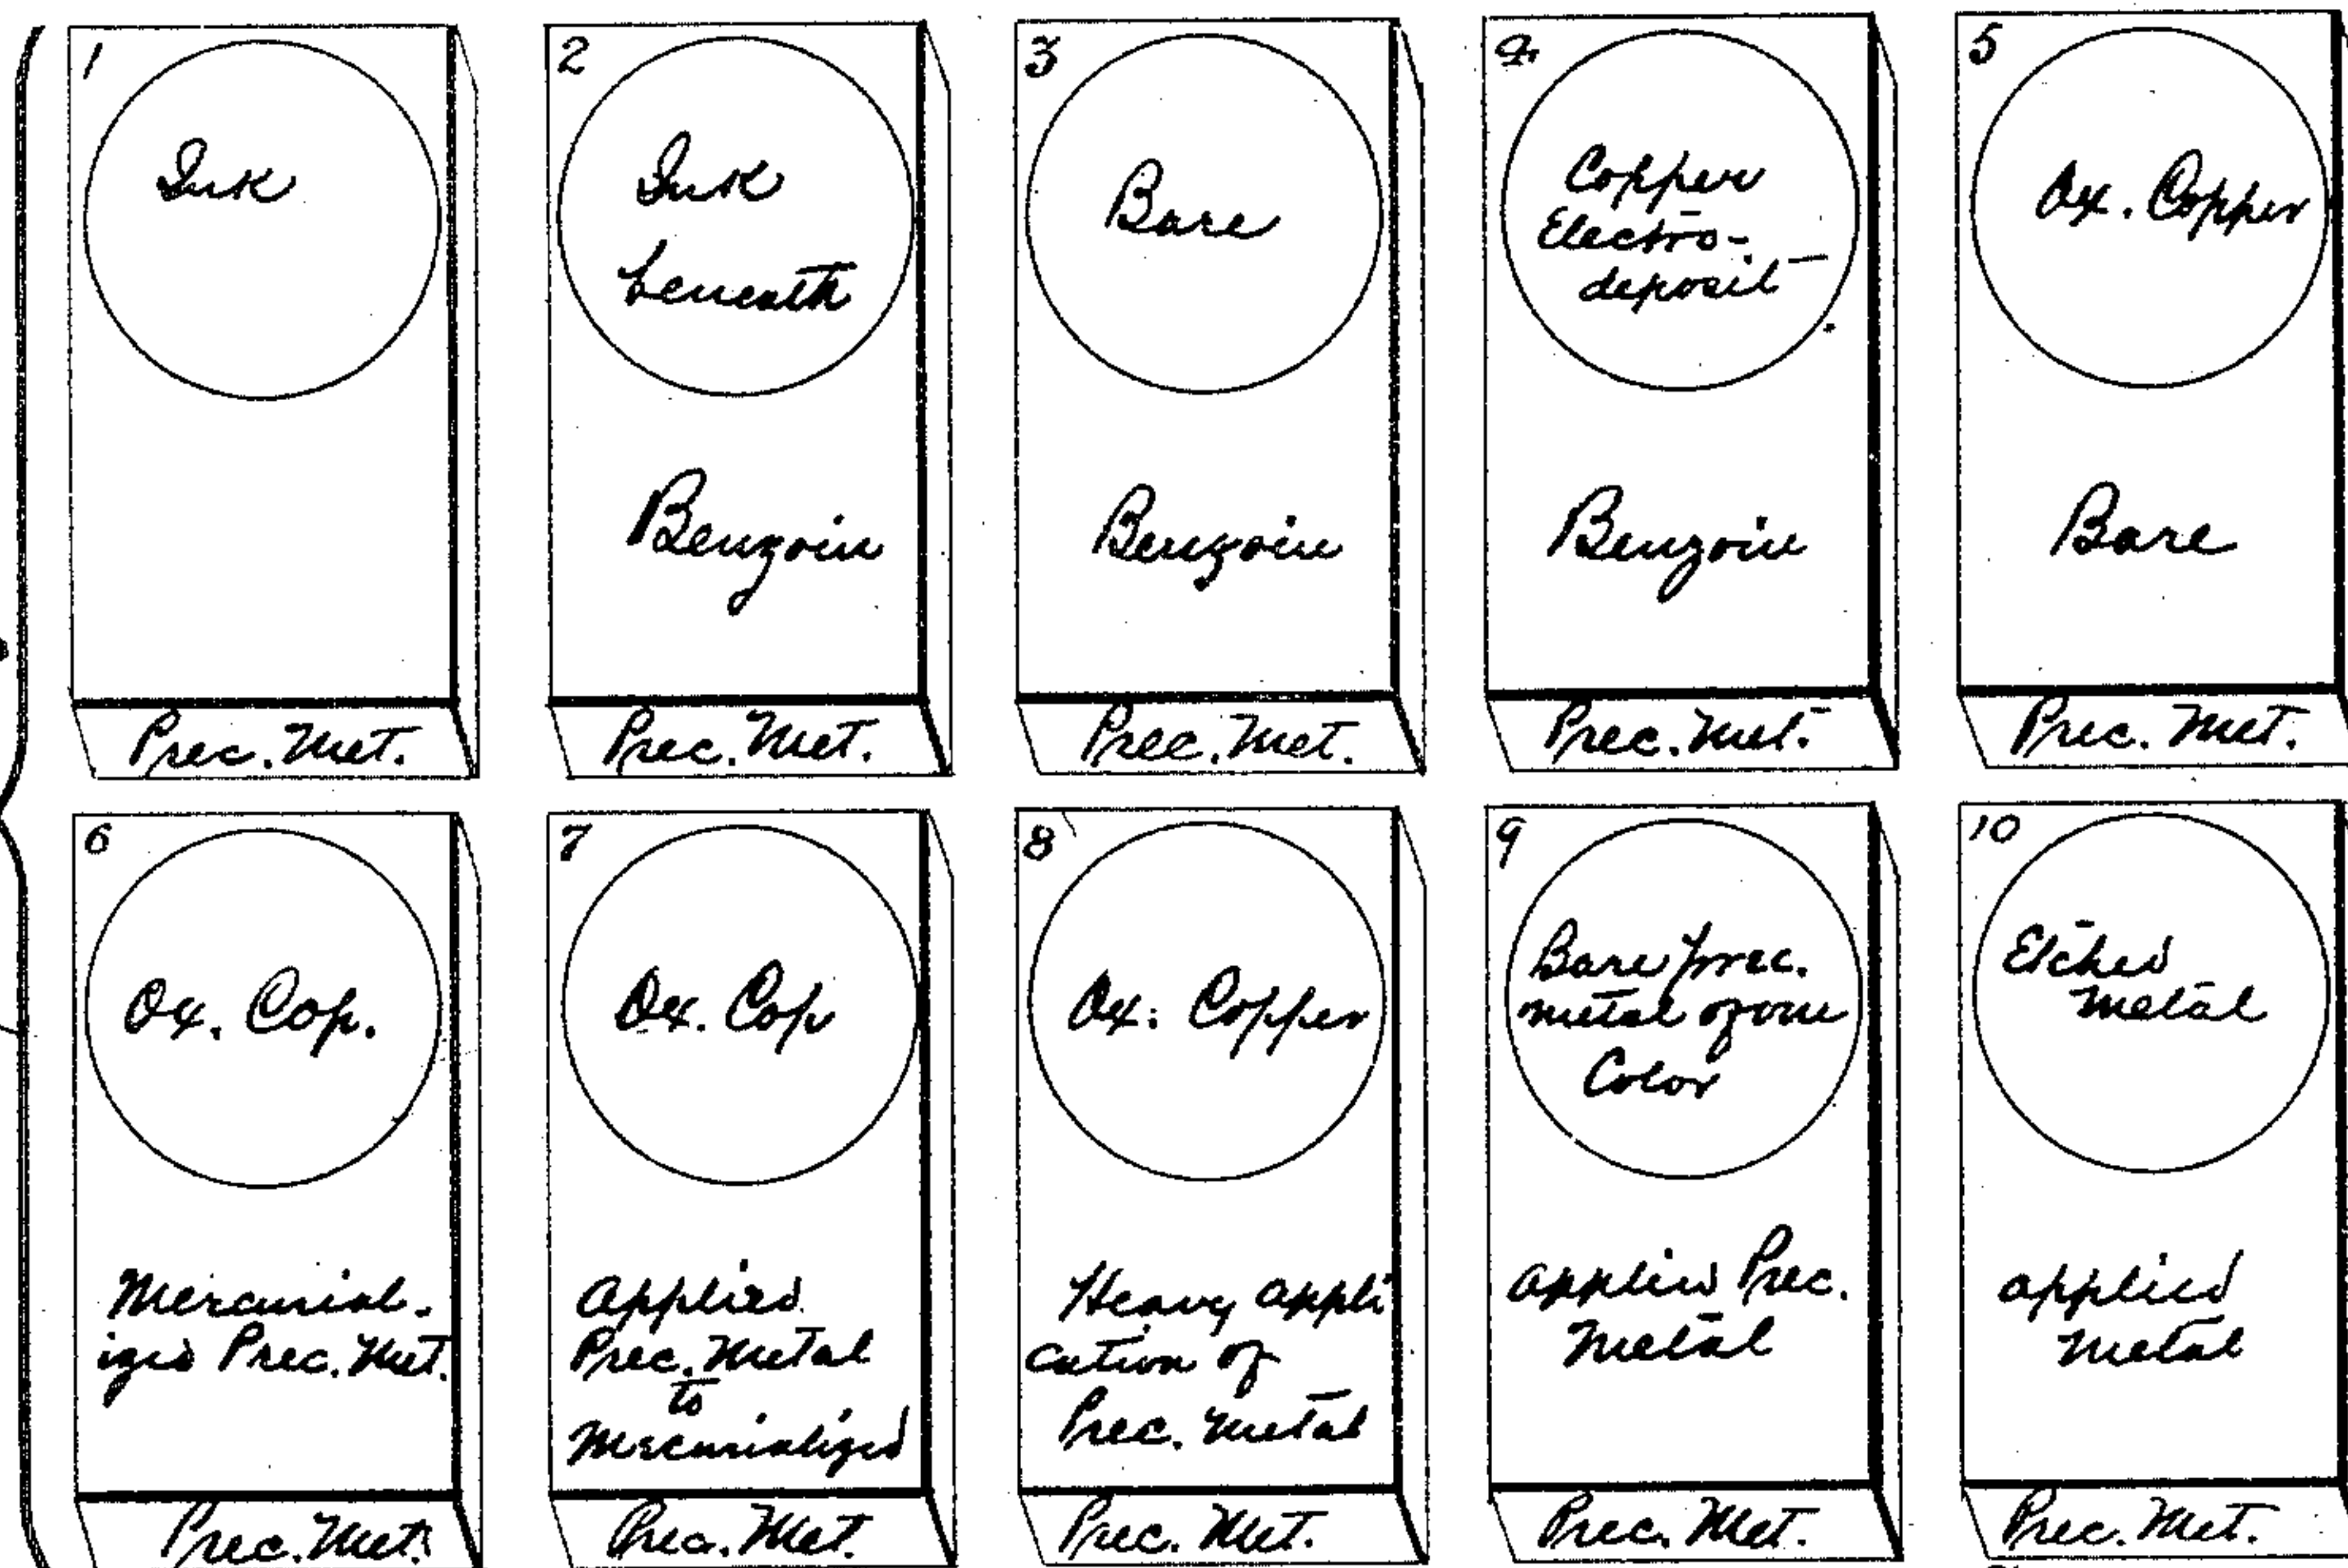 1
Ink
Prec. Met.
2
Ink
beneath
Benzoin
Prec. Met.
3
Bare
Benzoin
Prec. Met.
4
Copper
Electro-
deposit
Benzoin
Prec. Met.
5
Ox. Copper
Bare
Prec. Met.
6
Ox. Cop.
Mercurial-
ized Prec. Met.
Prec. Met.
7
Ox. Cop
Applied
Prec. Metal
to
Mercurialized
Prec. Met.
8
Ox. Copper
Heavy appli
cation of
Prec. Metal
Prec. Met.
9
Bare prec.
metal of one
Color
applied Prec.
Metal
Prec. Met.
10
Etched
Metal
applied
Metal
Prec. Met.